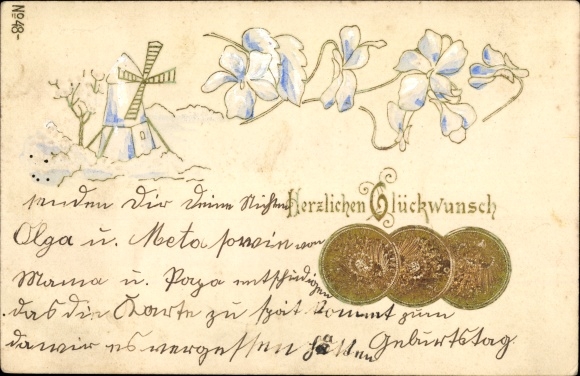 No 48-
Herzlichen Glückwunsch
senden Dir Deine Nichten
Olga u. Meta sowie von
Mama u. Papa entschudigen
das die Karte zu spät kommt zum
da wir es vergessen hatten Geburtstag